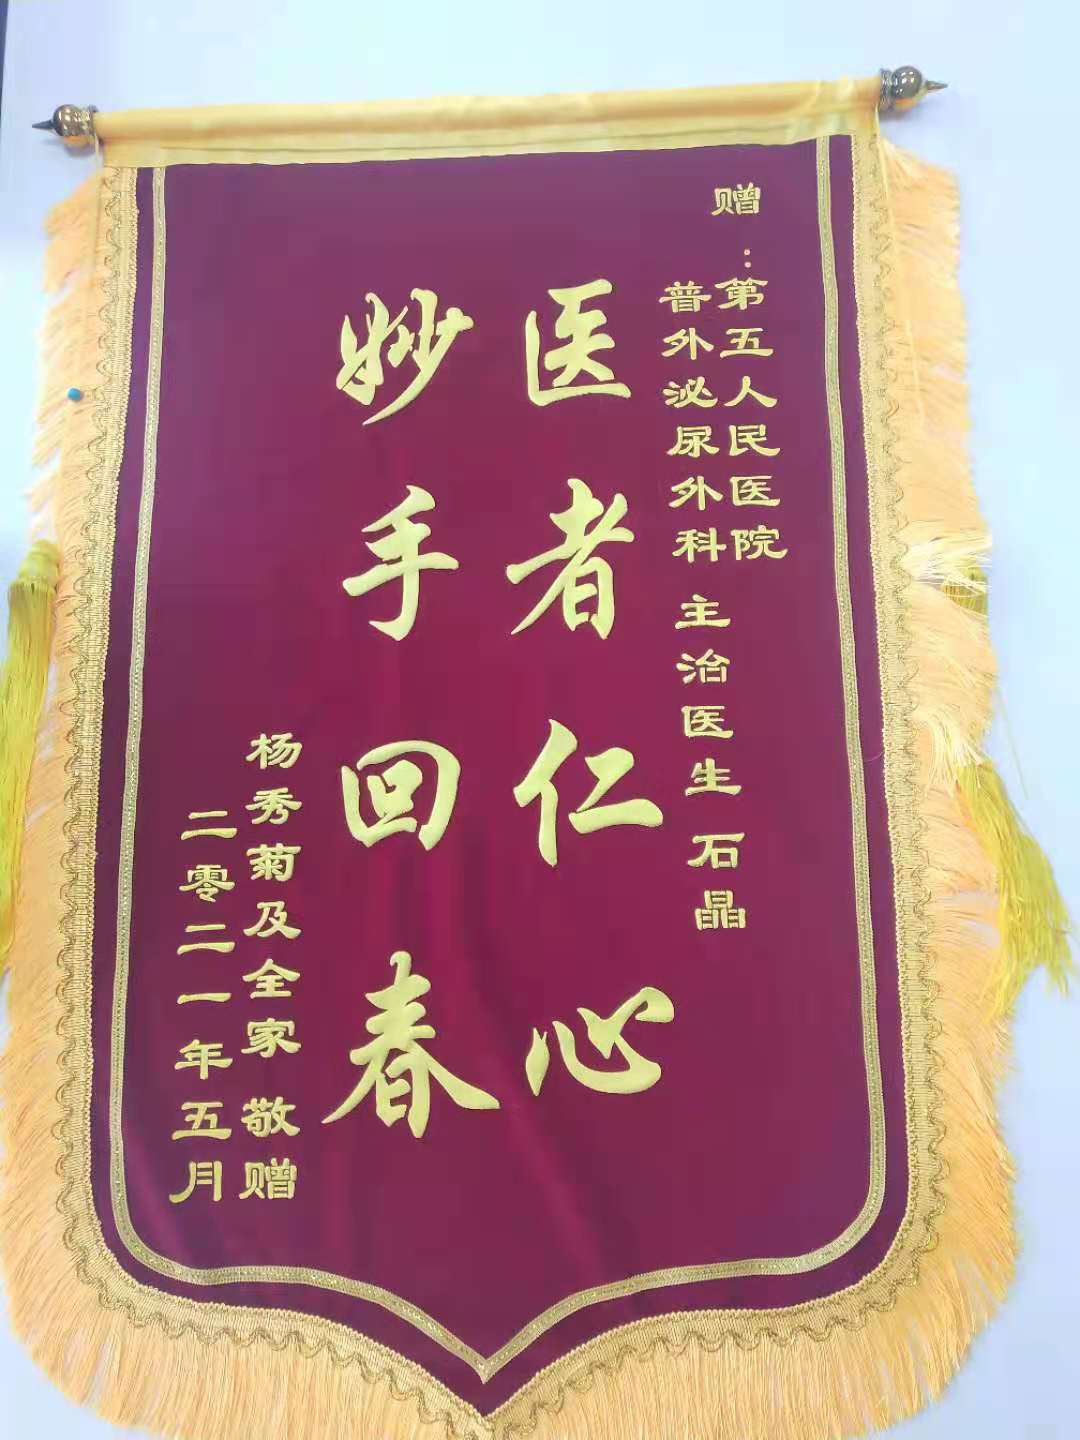 赠：第五人民医院
普外泌尿外科 主治医生 石晶
医者仁心
妙手回春
杨秀菊及全家 敬赠
二零二一年五月